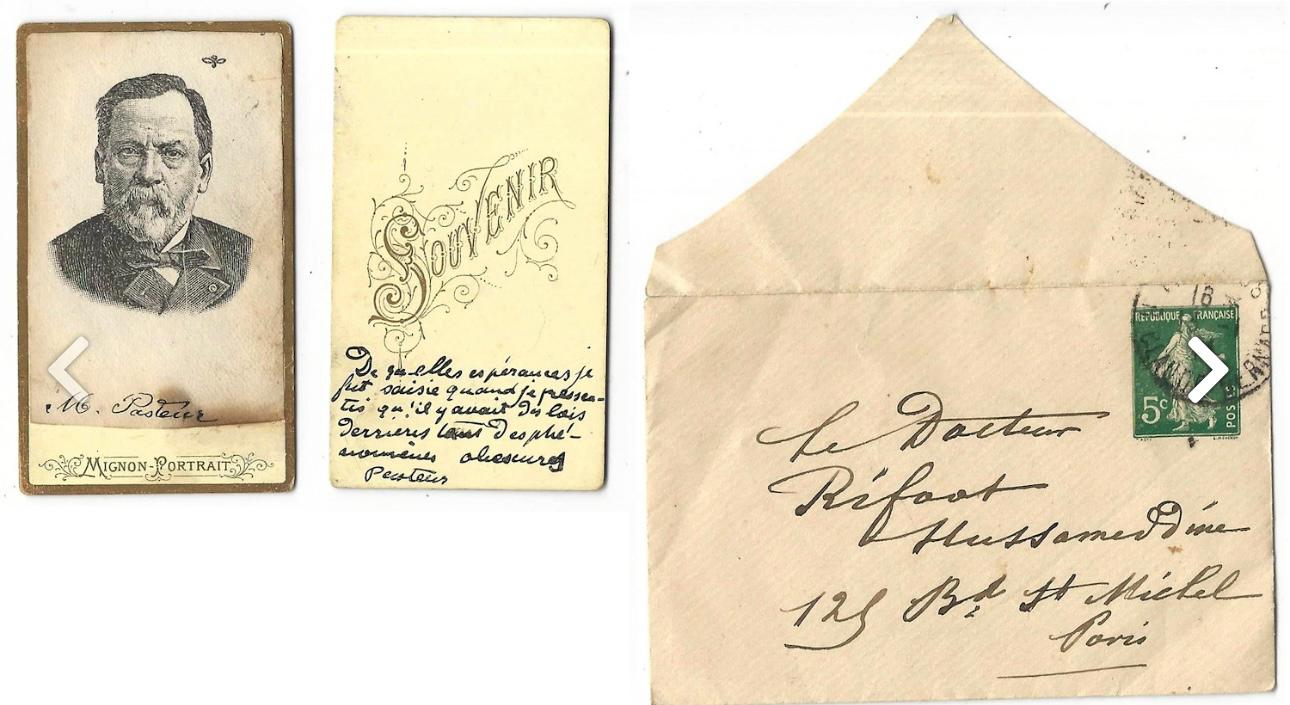 M. Pasteur
MIGNON-PORTRAIT
SOUVENIR
De quelles espérances je
fut saisie quand je pressen-
tis qu'il y avait des lois
derrières tout des phé-
nomènes obscures
Pasteur
REPUBLIQUE FRANÇAISE
5c
POSTES
Le Docteur
Rifaat
Hussameddine
125 Bd St Michel
Paris